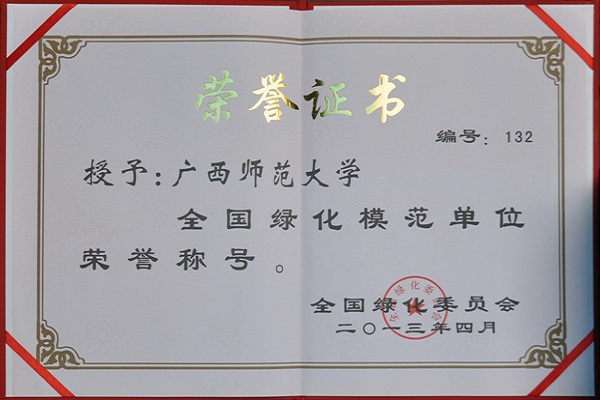 荣誉证书
编号：132
授予：广西师范大学
全国绿化模范单位
荣誉称号。
全国绿化委员会
二〇一三年四月
全国绿化委员会